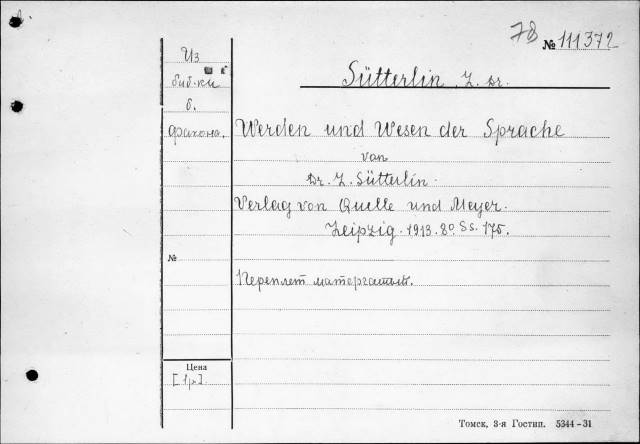 78 № 111372
Из
биб-ки
б.
Sütterlin, L. Dr.
Werden und Wesen der Sprache
von
Dr. L. Sütterlin.
Verlag von Quelle und Meyer.
Leipzig. 1913. 8º. Ss. 175.
№
Переплет
Цена
[1р.]
Томск, 3-я Гостип. 5344–31